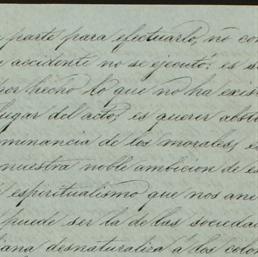 parte para efectuarlo, no con
accidente no se ejecutó; es s
por hecho lo que no ha exis
lugar del acto, es querer abst
minancia de los morales, e
nuestra noble ambicion de es
espiritualismo que nos ane
puede ser la de las sociedad
iana desnaturaliza á los colon